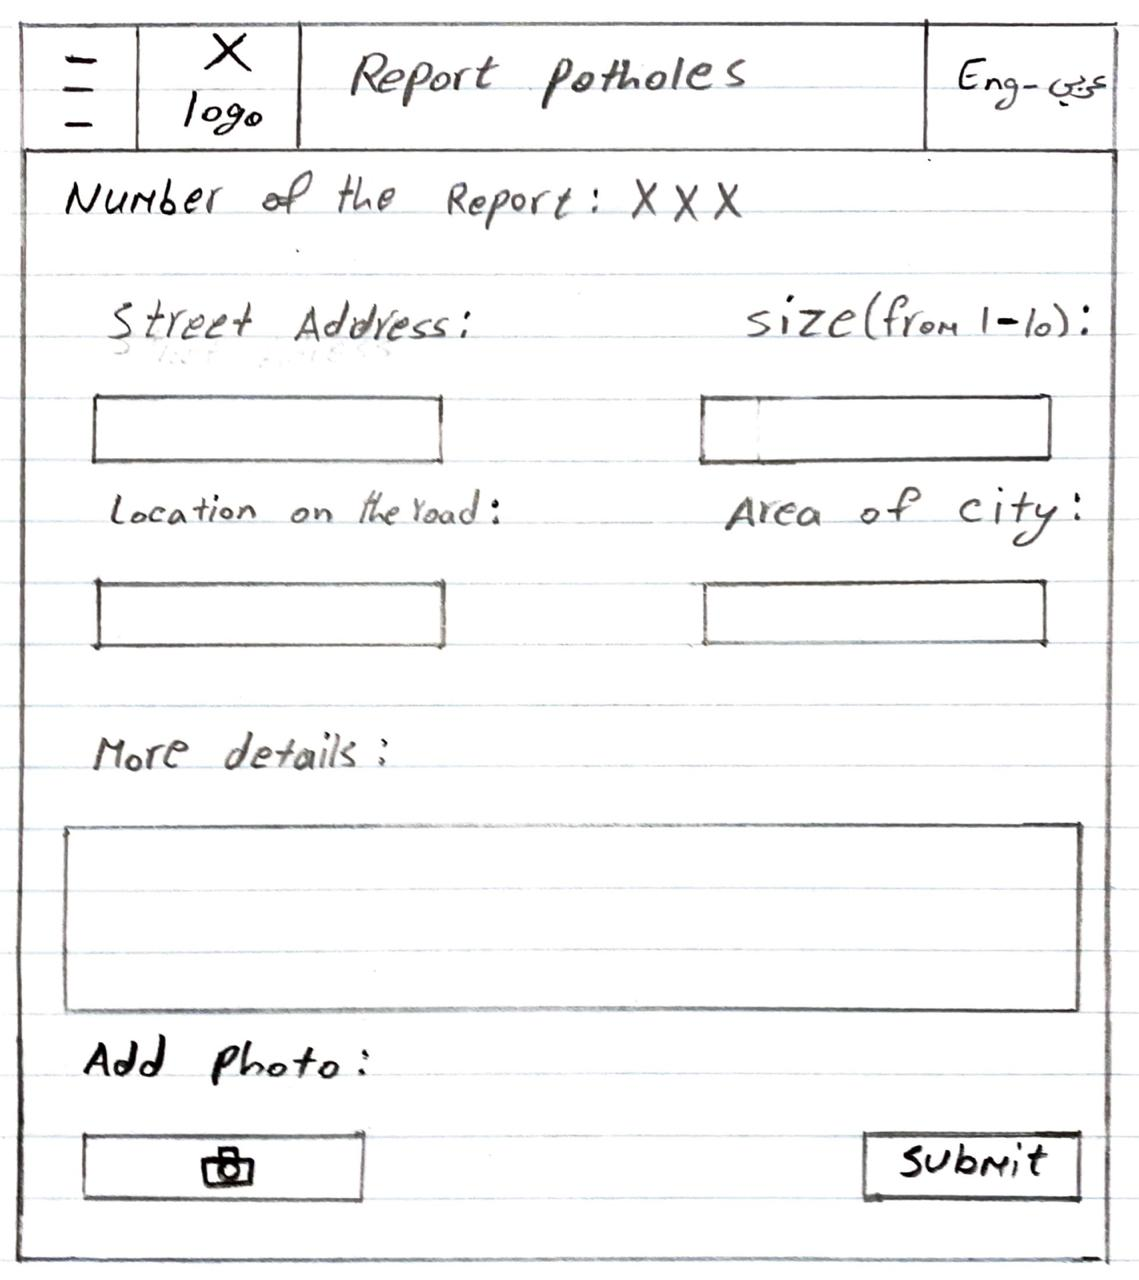 X
logo
Report Potholes
Eng-عربي
Number of the Report: XXX
Street Address:
size(from 1-10):
Location on the road:
Area of city:
More details:
Add Photo:
Submit